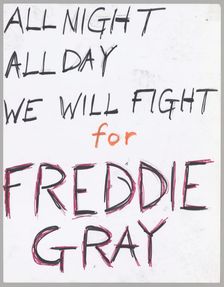 ALL NIGHT
ALL DAY
WE WILL FIGHT
for
FREDDIE
GRAY